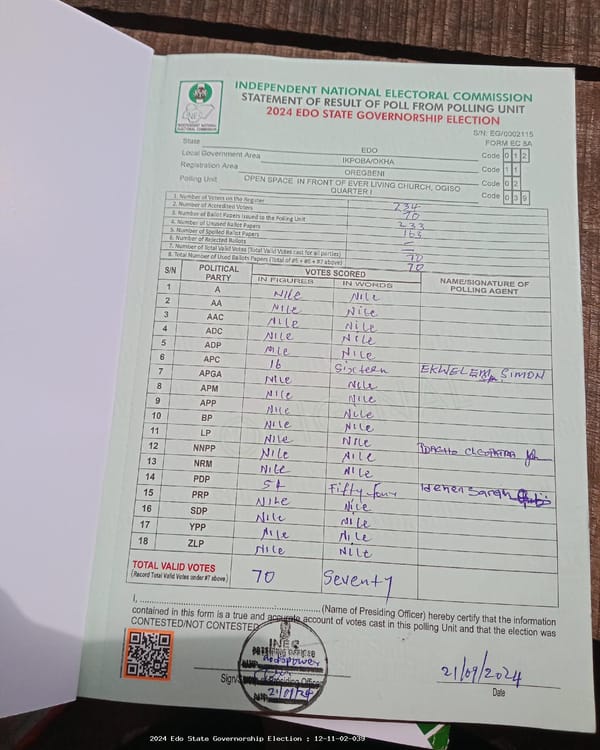 INDEPENDENT NATIONAL ELECTORAL COMMISSION
STATEMENT OF RESULT OF POLL FROM POLLING UNIT
2024 EDO STATE GOVERNORSHIP ELECTION
S/N: EG/0002115
FORM EC 8A
State EDO Code 0 1 2
Local Government Area IKPOBA/OKHA Code 1 1
Registration Area OREGBENI Code 0 2
Polling Unit OPEN SPACE IN FRONT OF EVER LIVING CHURCH, OGISO QUARTER I Code 0 3 9
1. Number of Voters on the Register 234
2. Number of Accredited Voters 70
3. Number of Ballot Papers Issued to the Polling Unit 233
4. Number of Unused Ballot Papers 163
5. Number of Spoiled Ballot Papers –
6. Number of Rejected Ballots –
7. Number of Total Valid Votes (Total Valid Votes cast for all parties) 70
8. Total Number of Used Ballots Papers (Total of #5 + #6 + #7 above) 70
S/N POLITICAL PARTY VOTES SCORED NAME/SIGNATURE OF POLLING AGENT
IN FIGURES IN WORDS
1 A Nile Nile
2 AA Nile Nile
3 AAC Nile Nile
4 ADC Nile Nile
5 ADP Nile Nile
6 APC 16 Sixteen EKWELEM SIMON
7 APGA Nile Nile
8 APM Nile Nile
9 APP Nile Nile
10 BP Nile Nile
11 LP Nile Nile CLEOPATRA
12 NNPP Nile Nile
13 NRM Nile Nile
14 PDP 54 Fifty-four Idehen Sarah
15 PRP Nile Nile
16 SDP Nile Nile
17 YPP Nile Nile
18 ZLP Nile Nile
TOTAL VALID VOTES 70 Seventy
(Record Total Valid Votes under #7 above)
I, (Name of Presiding Officer) hereby certify that the information
contained in this form is a true and accurate account of votes cast in this polling Unit and that the election was
CONTESTED/NOT CONTESTED
INEC
PRESIDING OFFICER
21/09/24
21/09/2024
Date
2024 Edo State Governorship Election : 12-11-02-039